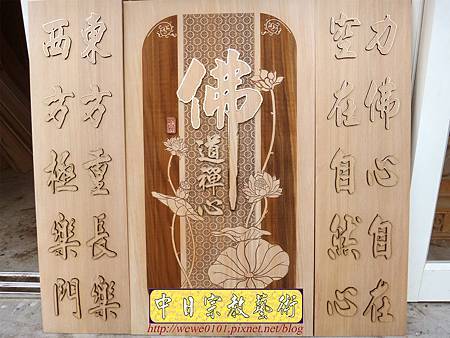 力佛心自在
空在自然心
佛
道禪心
東方重長樂
西方極樂門
中日宗教藝術
http://wewe0101.pixnet.net/blog